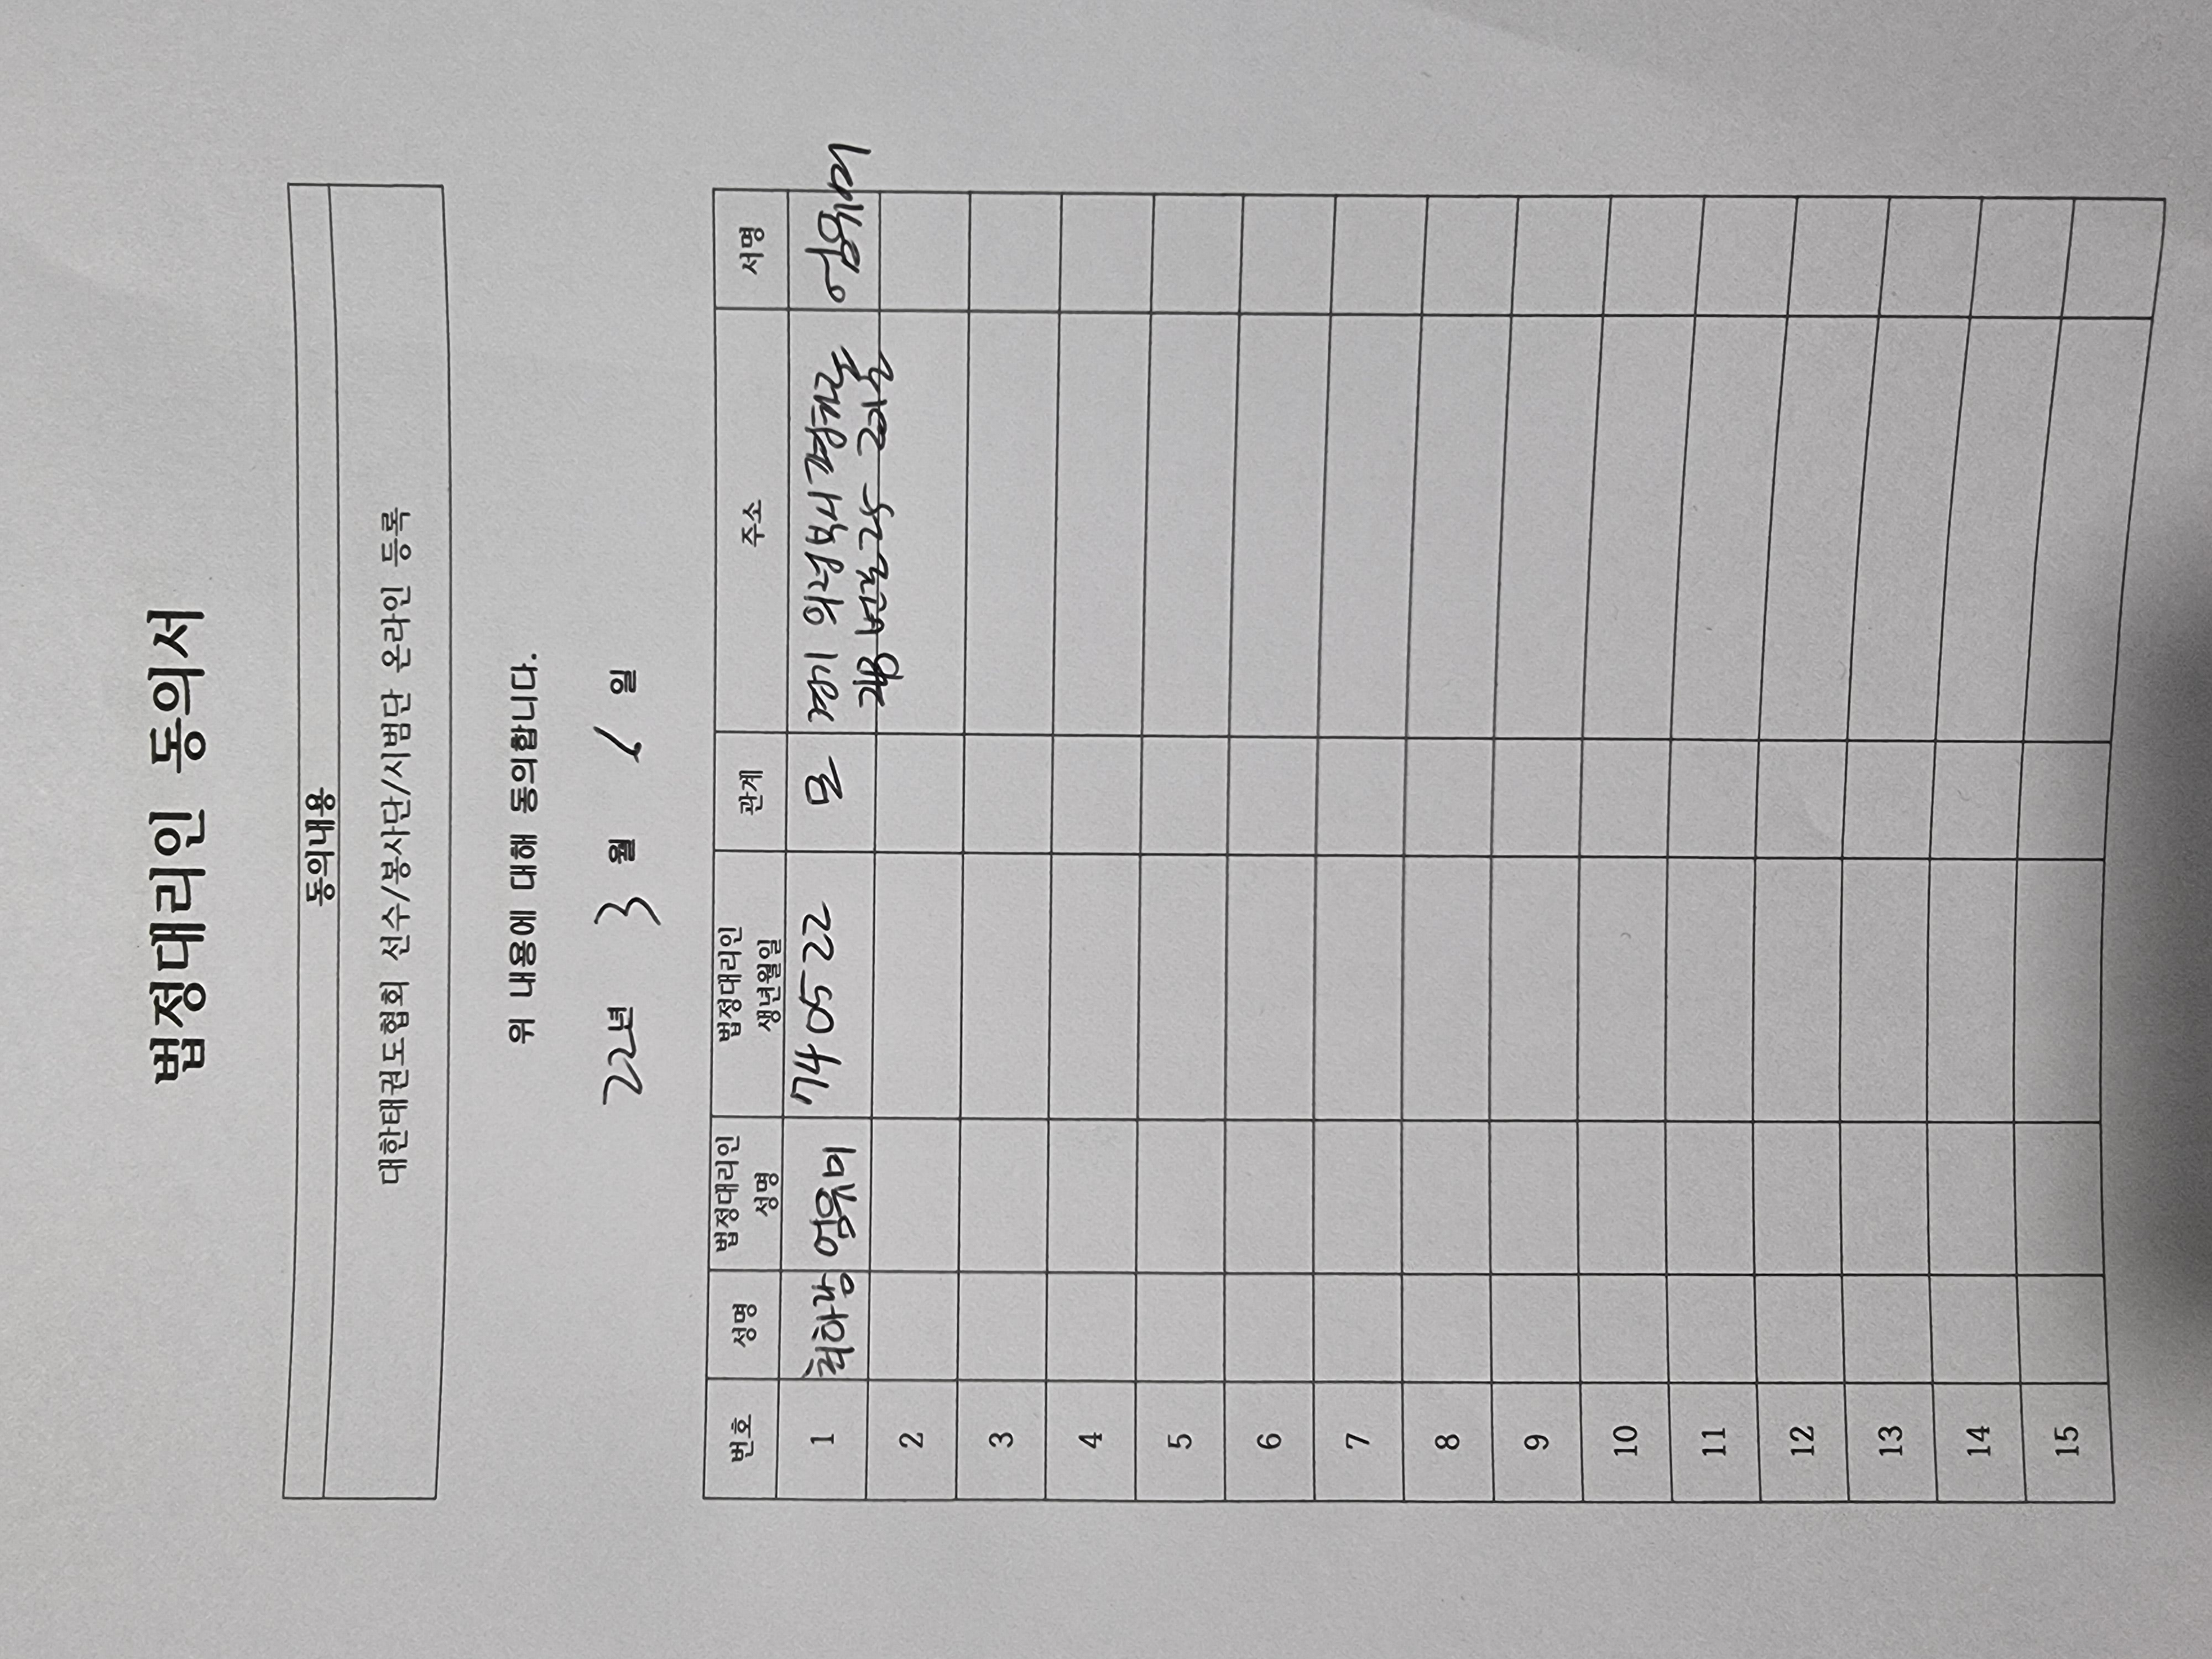 법정대리인 동의서
동의내용
대한태권도협회 선수/봉사단/시범단 온라인 등록
위 내용에 대해 동의합니다.
22년 3월 일
번호 성명 법정대리인 성명 법정대리인 생년월일 관계 주소 서명
1 최하랑 엄유미 740522 모 경기 의정부시 엄유미
2
3
4
5
6
7
8
9
10
11
12
13
14
15